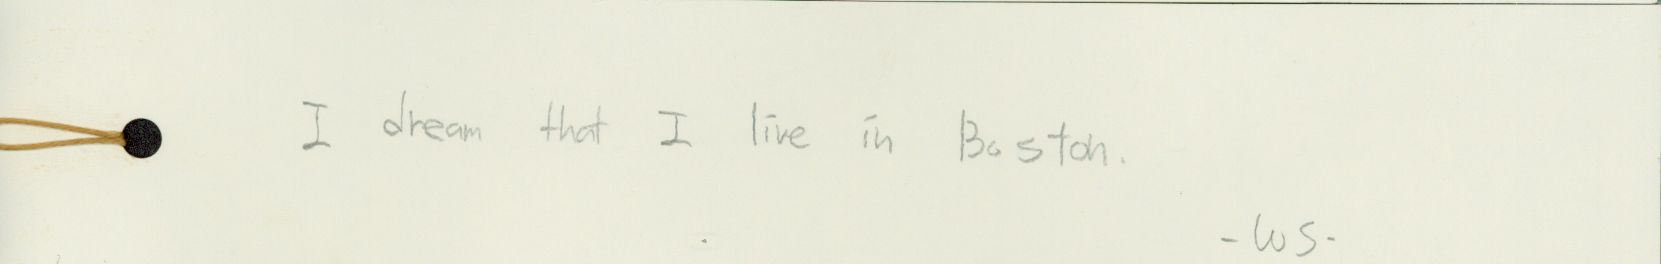 I dream that I live in Boston.
-WS-